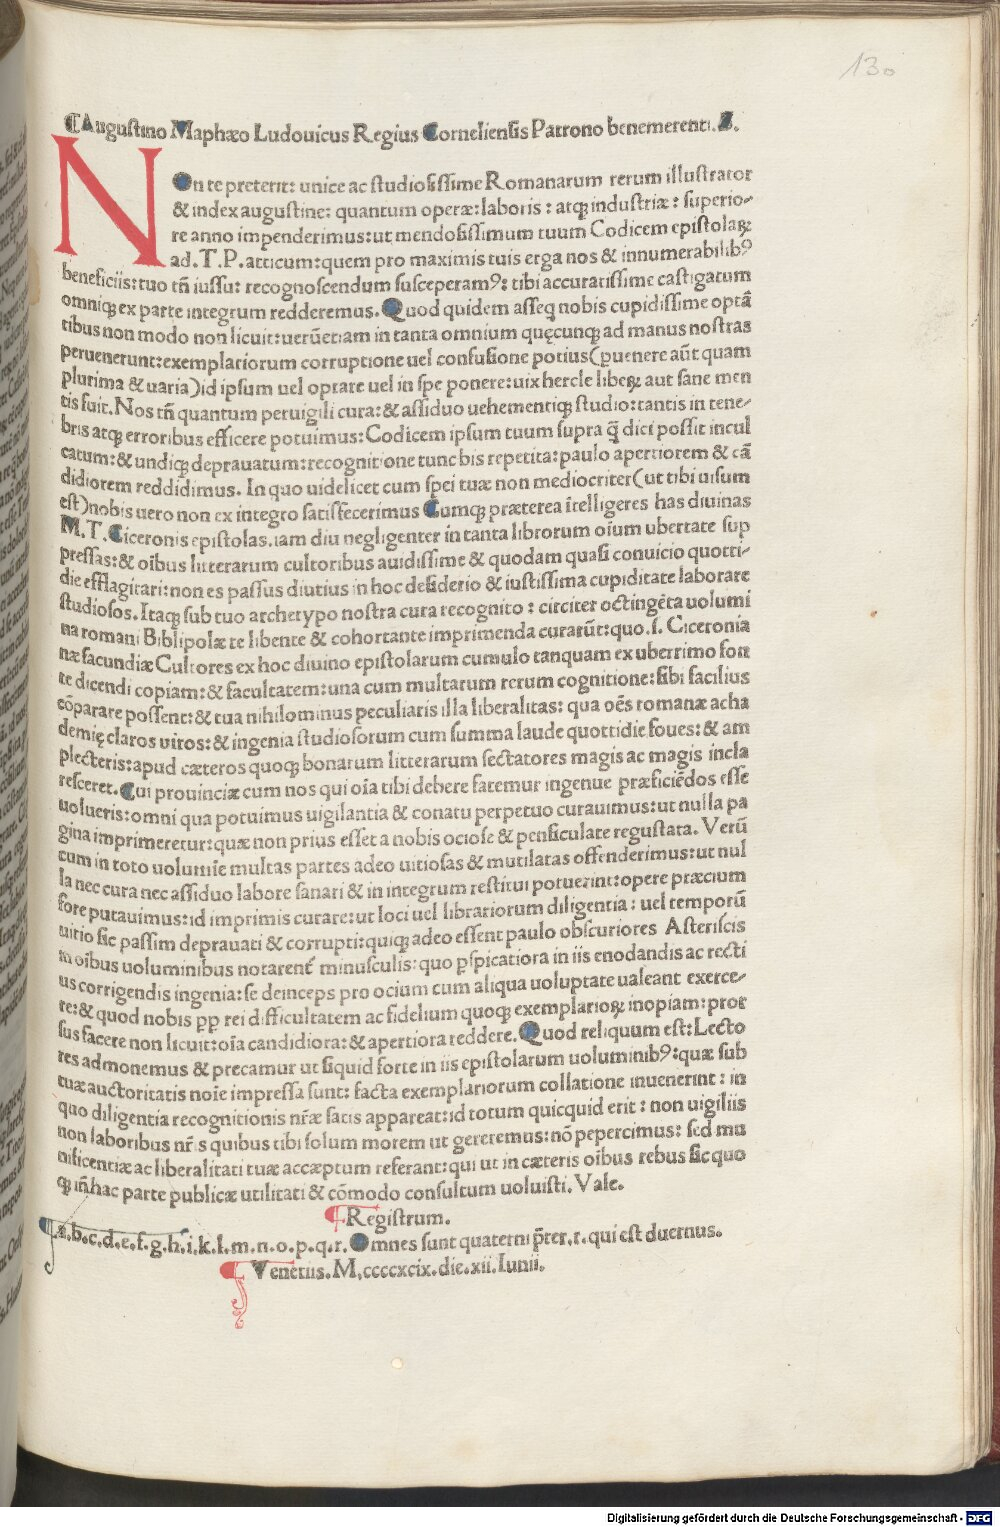 130
¶Augustino Maphæo Ludouicus Regius Corneliensis Patrono benemerenti. S.
NOn te preterit: unice ac studiosissime Romanarum rerum illustrator
& index augustine: quantum operæ: laboris: atqꝫ industriæ: superio-
re anno impenderimus: ut mendosissimum tuum Codicem epistolaꝝ
ad. T. P. atticum: quem pro maximis tuis erga nos & innumerabilibꝰ
beneficiis: tuo tñ iussu: recognoscendum susceperamꝰ: tibi accuratissime castigatum
omniqꝫ ex parte integrum redderemus. Quod quidem asseq nobis cupidissime optā
tibus non modo non licuit: uerūetiam in tanta omnium quęcunqꝫ ad manus nostras
peruenerunt: exemplariorum corruptione uel confusione potius (puenere aūt quam
plurima & uaria) id ipsum uel optare uel in spe ponere: uix hercle libeꝝ aut sane men
tis fuit. Nos tñ quantum peruigili cura: & assiduo uehementiqꝫ studio: tantis in tene-
bris atqꝫ erroribus efficere potuimus: Codicem ipsum tuum supra q̃ dici possit incul
catum: & undiqꝫ deprauatum: recognitione tunc bis repetita: paulo apertiorem & cā
didiorem reddidimus. In quo uidelicet cum spei tuæ non mediocriter (ut tibi uisum
est) nobis uero non ex integro satisfecerimus Cumqꝫ præterea ītelligeres has diuinas
M. T. Ciceronis epistolas. iam diu negligenter in tanta librorum oīum ubertate sup
pressas: & oībus litterarum cultoribus auidissime & quodam quasi conuicio quotti-
die efflagitari: non es passus diutius in hoc desiderio & iustissima cupiditate laborare
studiosos. Itaqꝫ sub tuo archetypo nostra cura recognito: circiter octingēta uolumi
na romani Bibliopolæ te libente & cohortante imprimenda curarūt: quo. s. Ciceronia
næ facundiæ Cultores ex hoc diuino epistolarum cumulo tanquam ex uberrimo fon
te dicendi copiam: & facultatem: una cum multarum rerum cognitione: sibi facilius
cōparare possent: & tua nihilominus peculiaris illa liberalitas: qua oēs romanæ acha
demię claros uiros: & ingenia studiosorum cum summa laude quottidie foues: & am
plecteris: apud cæteros quoqꝫ bonarum litterarum sectatores magis ac magis incla
resceret. Cui prouinciæ cum nos qui oīa tibi debere fatemur ingenue præficiēdos esse
uolueris: omni qua potuimus uigilantia & conatu perpetuo curauimus: ut nulla pa
gina imprimeretur: quæ non prius esset a nobis ociose & pensiculate regustata. Verū
cum in toto uolumīe multas partes adeo uitiosas & mutilatas offenderimus: ut nul
la nec cura nec assiduo labore sanari & in integrum restitui potuerint: opere præcium
fore putauimus: id imprimis curare: ut loci uel librariorum diligentia: uel temporū
uitio sic passim deprauati & corrupti: quiqꝫ adeo essent paulo obscuriores Asteriscis
in oībus uoluminibus notarent᷑ minusculis: quo pspicatiora in iis enodandis ac recti
us corrigendis ingenia: se deinceps pro ocium cum aliqua uoluptate ualeant exerce-
re: & quod nobis pp rei difficultatem ac fidelium quoqꝫ exemplarioꝝ inopiam: pror
sus facere non licuit: oīa candidiora: & apertiora reddere. Quod reliquum est: Lecto
res admonemus & precamur ut siquid forte in iis epistolarum uoluminibꝰ: quæ sub
tuæ auctoritatis noīe impressa sunt: facta exemplariorum collatione inuenerint: in
quo diligentia recognitionis nr̃æ satis appareat: id totum quicquid erit: non uigiliis
non laboribus nr̃s quibus tibi solum morem ut gereremus: nō pepercimus: sed mu
nificentiæ ac liberalitati tuæ accæptum referant: qui ut in cæteris oībus rebus sic quo
qꝫ in hac parte publicæ utilitati & cōmodo consultum uoluisti. Vale.
¶Registrum.
¶a.b.c.d.e.f.g.h.i.k.l.m.n.o.p.q.r. Omnes sunt quaterni p̃ter. r. qui est duernus.
¶Venetiis. M.ccccxcix. die. xii. Iunii.
Digitalisierung gefördert durch die Deutsche Forschungsgemeinschaft - DFG